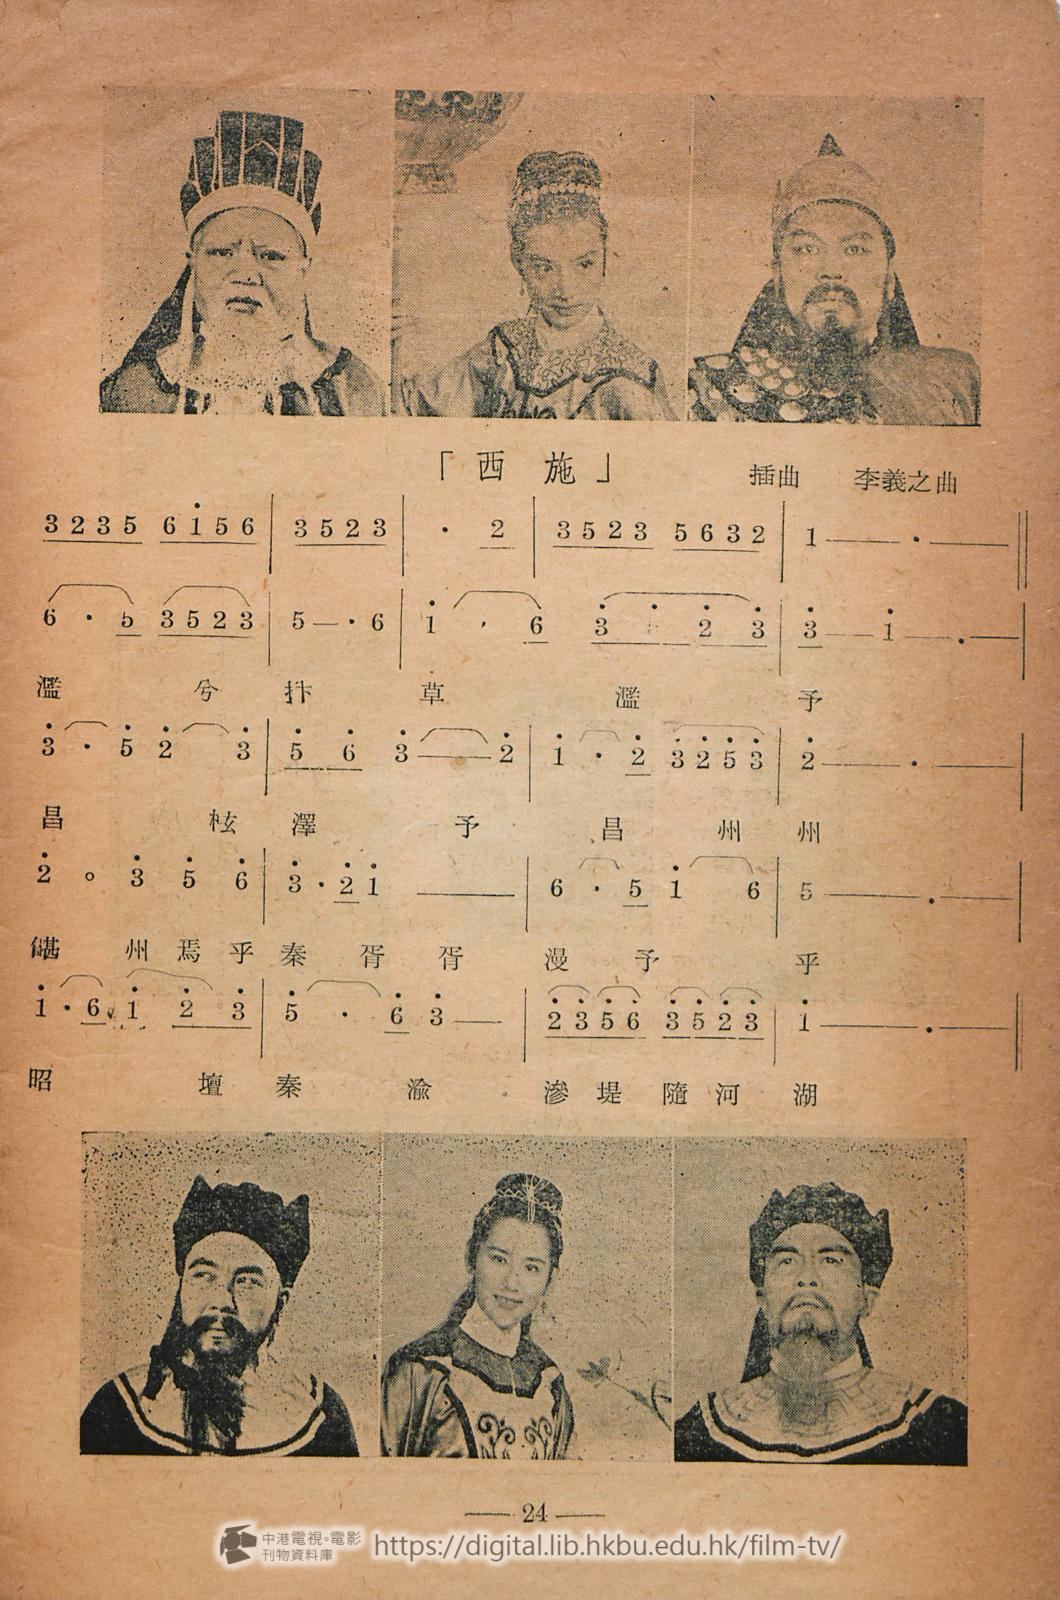 「西施」 插曲 李義之曲
3 2 3 5 6 i 5 6 | 3 5 2 3 | · 2 | 3 5 2 3 5 6 3 2 | 1 — · — ‖
6 · 5 3 5 2 3 | 5 — · 6 | i , 6 3̇ 2̇ 3̇ | 3̇ — i — . — |
濫 兮 抃 草 濫 予
3̇ · 5̇ 2̇ 3̇ | 5̇ 6̇ 3̇ — 2̇ | i · 2̇ 3̇ 2̇ 5̇ 3̇ | 2̇ — · — |
昌 枑 澤 予 昌 州 州
2̇ 。 3̇ 5̇ 6̇ | 3̇ · 2̇ i — | 6 · 5 i 6 | 5 — . — |
州 焉 乎 秦 胥 胥 漫 予 乎
i · 6 i 2̇ 3̇ | 5̇ · 6̇ 3̇ — | 2̇ 3̇ 5̇ 6̇ 3̇ 5̇ 2̇ 3̇ | i — . — ‖
昭 壇 秦 渝 滲 堤 隨 河 湖
— 24 —
中港電視。電影
刊物資料庫
https://digital.lib.hkbu.edu.hk/film-tv/